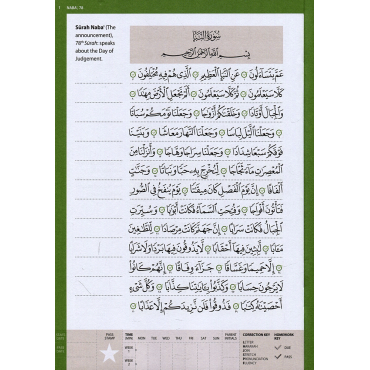 1 NABA' 78
Sūrah Naba' (The
announcement),
78th Sūrah: speaks
about the Day of
Judgement.
سُورَةُ النَّبَإِ
بِسْمِ اللَّهِ الرَّحْمَٰنِ الرَّحِيمِ
عَمَّ يَتَسَآءَلُونَ ١ عَنِ النَّبَإِ الْعَظِيمِ ٢ الَّذِي هُمْ فِيهِ مُخْتَلِفُونَ ٣
كَلَّا سَيَعْلَمُونَ ٤ ثُمَّ كَلَّا سَيَعْلَمُونَ ٥ أَلَمْ نَجْعَلِ الْأَرْضَ مِهَٰدًا ٦
وَالْجِبَالَ أَوْتَادًا ٧ وَخَلَقْنَٰكُمْ أَزْوَٰجًا ٨ وَجَعَلْنَا نَوْمَكُمْ سُبَاتًا ٩
وَجَعَلْنَا الَّيْلَ لِبَاسًا ١٠ وَجَعَلْنَا النَّهَارَ مَعَاشًا ١١ وَبَنَيْنَا
فَوْقَكُمْ سَبْعًا شِدَادًا ١٢ وَجَعَلْنَا سِرَاجًا وَهَّاجًا ١٣ وَأَنزَلْنَا مِنَ
الْمُعْصِرَٰتِ مَآءً ثَجَّاجًا ١٤ لِّنُخْرِجَ بِهِ حَبًّا وَنَبَاتًا ١٥ وَجَنَّٰتٍ
أَلْفَافًا ١٦ إِنَّ يَوْمَ الْفَصْلِ كَانَ مِيقَٰتًا ١٧ يَوْمَ يُنفَخُ فِي الصُّورِ
فَتَأْتُونَ أَفْوَاجًا ١٨ وَفُتِحَتِ السَّمَآءُ فَكَانَتْ أَبْوَٰبًا ١٩ وَسُيِّرَتِ
الْجِبَالُ فَكَانَتْ سَرَابًا ٢٠ إِنَّ جَهَنَّمَ كَانَتْ مِرْصَادًا ٢١ لِّلطَّٰغِينَ
مَـَٔابًا ٢٢ لَّٰبِثِينَ فِيهَآ أَحْقَابًا ٢٣ لَّا يَذُوقُونَ فِيهَا بَرْدًا وَلَا شَرَابًا
٢٤ إِلَّا حَمِيمًا وَغَسَّاقًا ٢٥ جَزَآءً وِفَاقًا ٢٦ إِنَّهُمْ كَانُوا
لَا يَرْجُونَ حِسَابًا ٢٧ وَكَذَّبُوا بِـَٔايَٰتِنَا كِذَّابًا ٢٨ وَكُلَّ شَيْءٍ
أَحْصَيْنَٰهُ كِتَٰبًا ٢٩ فَذُوقُوا فَلَن نَّزِيدَكُمْ إِلَّا عَذَابًا ٣٠
PAGE STAMP TIME DAYS MON TUE WED THU FRI SAT SUN PARENT INITIALS CORRECTION KEY HOMEWORK KEY
DUE
PASS